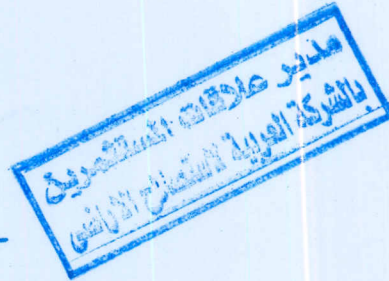 مدير علاقات المستثمرين
بالشركة العربية لاستصلاح الأراضى